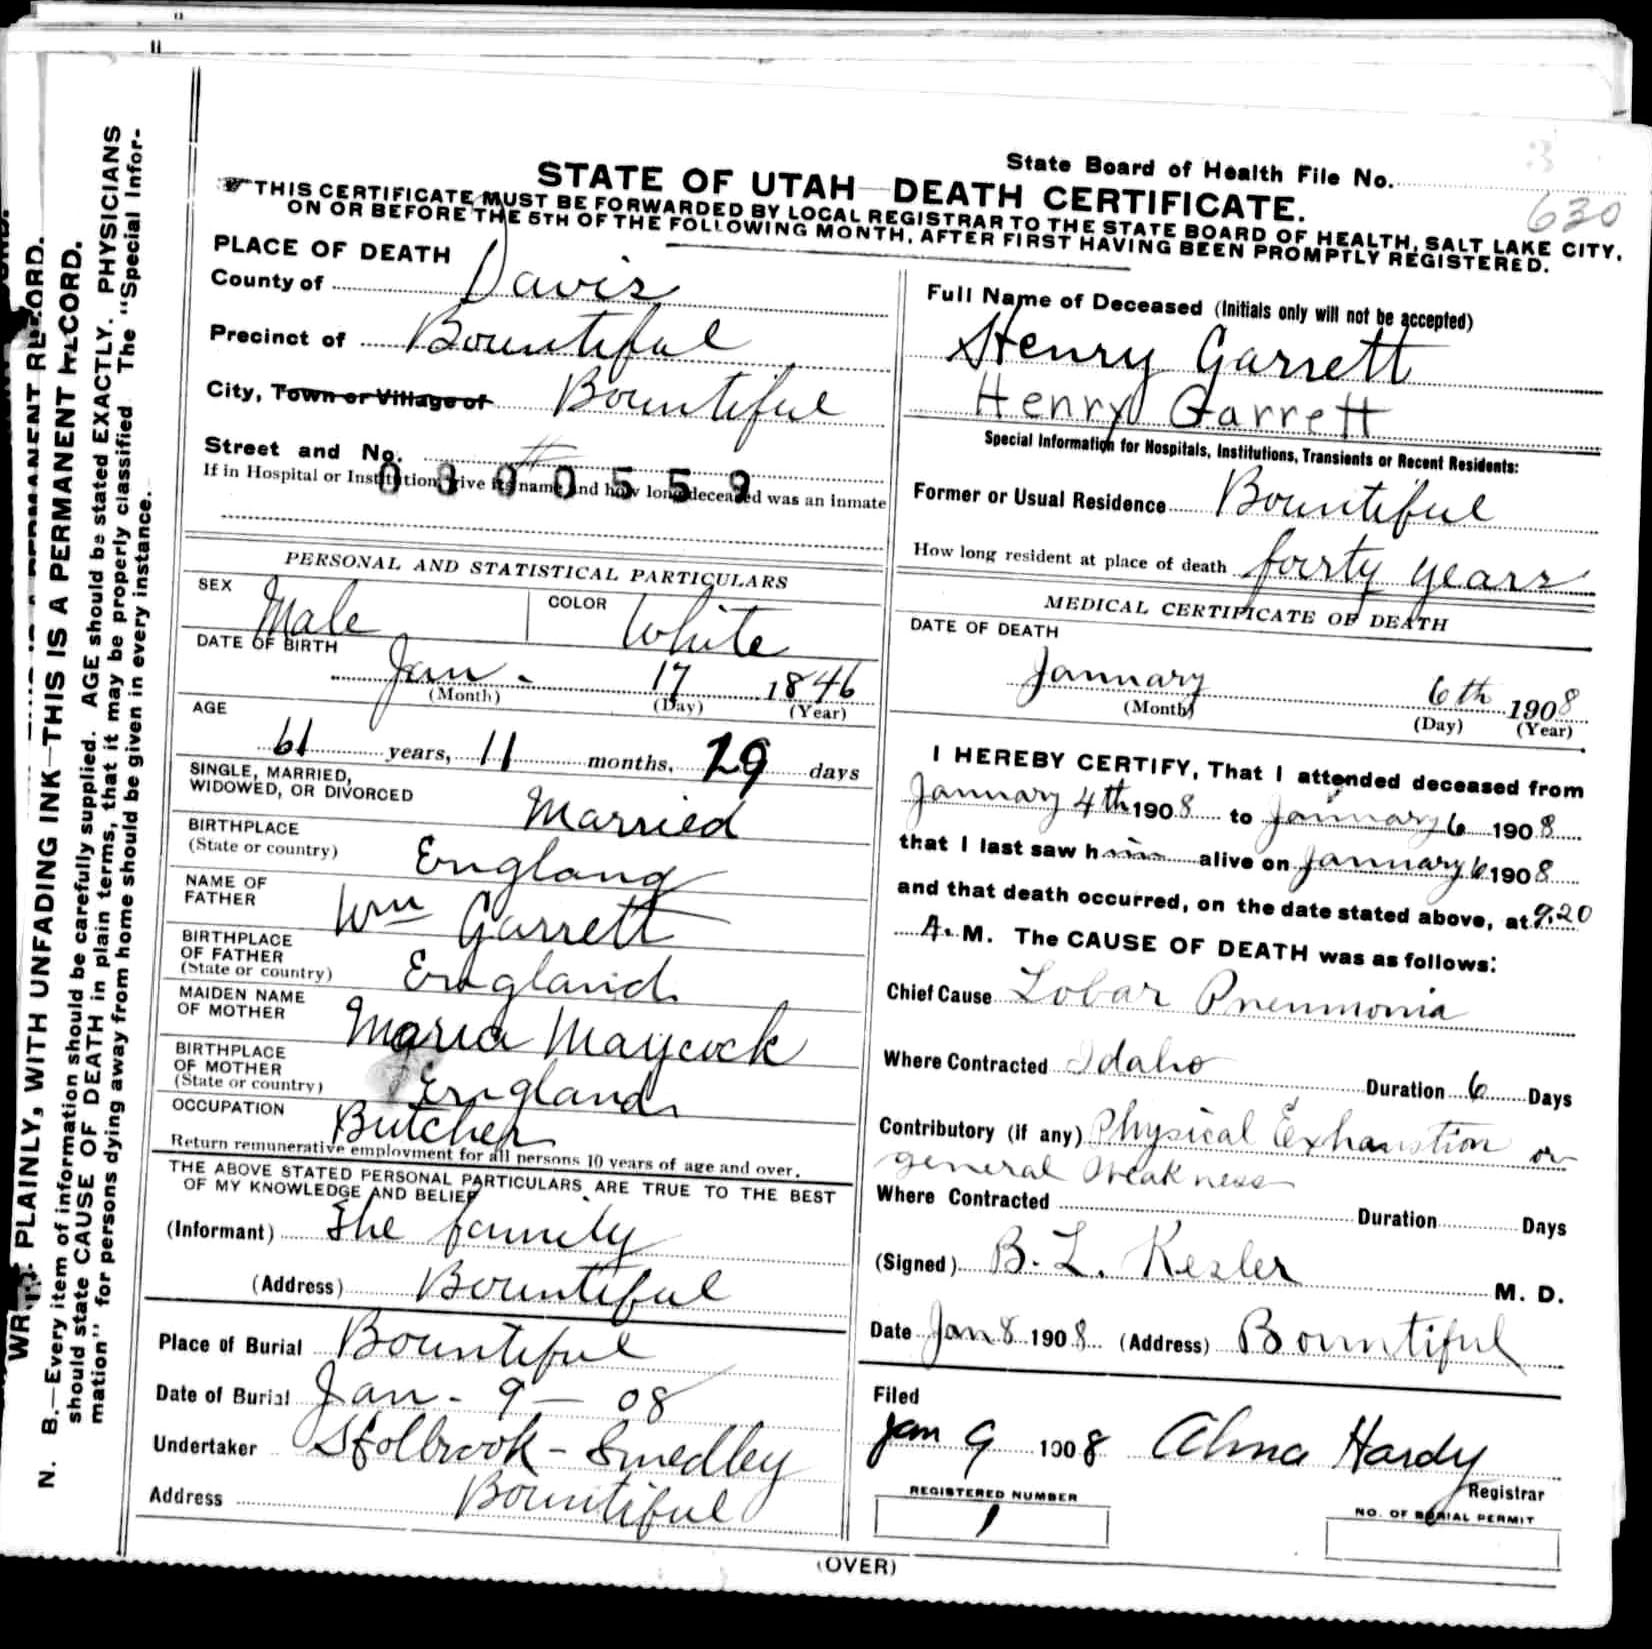 State Board of Health File No.
630
STATE OF UTAH—DEATH CERTIFICATE.
THIS CERTIFICATE MUST BE FORWARDED BY LOCAL REGISTRAR TO THE STATE BOARD OF HEALTH, SALT LAKE CITY,
ON OR BEFORE THE 5TH OF THE FOLLOWING MONTH, AFTER FIRST HAVING BEEN PROMPTLY REGISTERED.
PLACE OF DEATH
County of Davis
Precinct of Bountiful
City, Town or Village of Bountiful
Street and No.
0300559
If in Hospital or Institution, give its name and how long deceased was an inmate
PERSONAL AND STATISTICAL PARTICULARS
SEX Male COLOR White
DATE OF BIRTH
Jan - 17 1846
(Month) (Day) (Year)
AGE
61 years, 11 months, 19 days
SINGLE, MARRIED,
WIDOWED, OR DIVORCED Married
BIRTHPLACE
(State or country) England
NAME OF
FATHER Wm Garrett
BIRTHPLACE
OF FATHER
(State or country) England
MAIDEN NAME
OF MOTHER Maria Maycock
BIRTHPLACE
OF MOTHER
(State or country) England
OCCUPATION Butcher
Return remunerative employment for all persons 10 years of age and over.
THE ABOVE STATED PERSONAL PARTICULARS ARE TRUE TO THE BEST
OF MY KNOWLEDGE AND BELIEF
(Informant) The family
(Address) Bountiful
Place of Burial Bountiful
Date of Burial Jan - 9 - 08
Undertaker Holbrook - Smedley
Address Bountiful
Full Name of Deceased (Initials only will not be accepted)
Henry Garrett
Henry Garrett
Special Information for Hospitals, Institutions, Transients or Recent Residents:
Former or Usual Residence Bountiful
How long resident at place of death fourty years
MEDICAL CERTIFICATE OF DEATH
DATE OF DEATH
January 6th 1908
(Month) (Day) (Year)
I HEREBY CERTIFY, That I attended deceased from
January 4th 1908 to January 6 1908
that I last saw him alive on January 6 1908
and that death occurred, on the date stated above, at 9.20
A. M. The CAUSE OF DEATH was as follows:
Chief Cause Lobar Pneumonia
Where Contracted Idaho Duration 6 Days
Contributory (if any) Physical Exhaustion or
general Weakness
Where Contracted Duration Days
(Signed) B. L. Kesler M. D.
Date Jan 8 1908 (Address) Bountiful
Filed
Jan 9 1908 Alma Hardy
Registrar
REGISTERED NUMBER
1
NO. OF BURIAL PERMIT
(OVER)
WRITE PLAINLY, WITH UNFADING INK—THIS IS A PERMANENT RECORD.
N. B.—Every item of information should be carefully supplied. AGE should be stated EXACTLY. PHYSICIANS
should state CAUSE OF DEATH in plain terms, that it may be properly classified The "Special Infor-
mation" for persons dying away from home should be given in every instance.